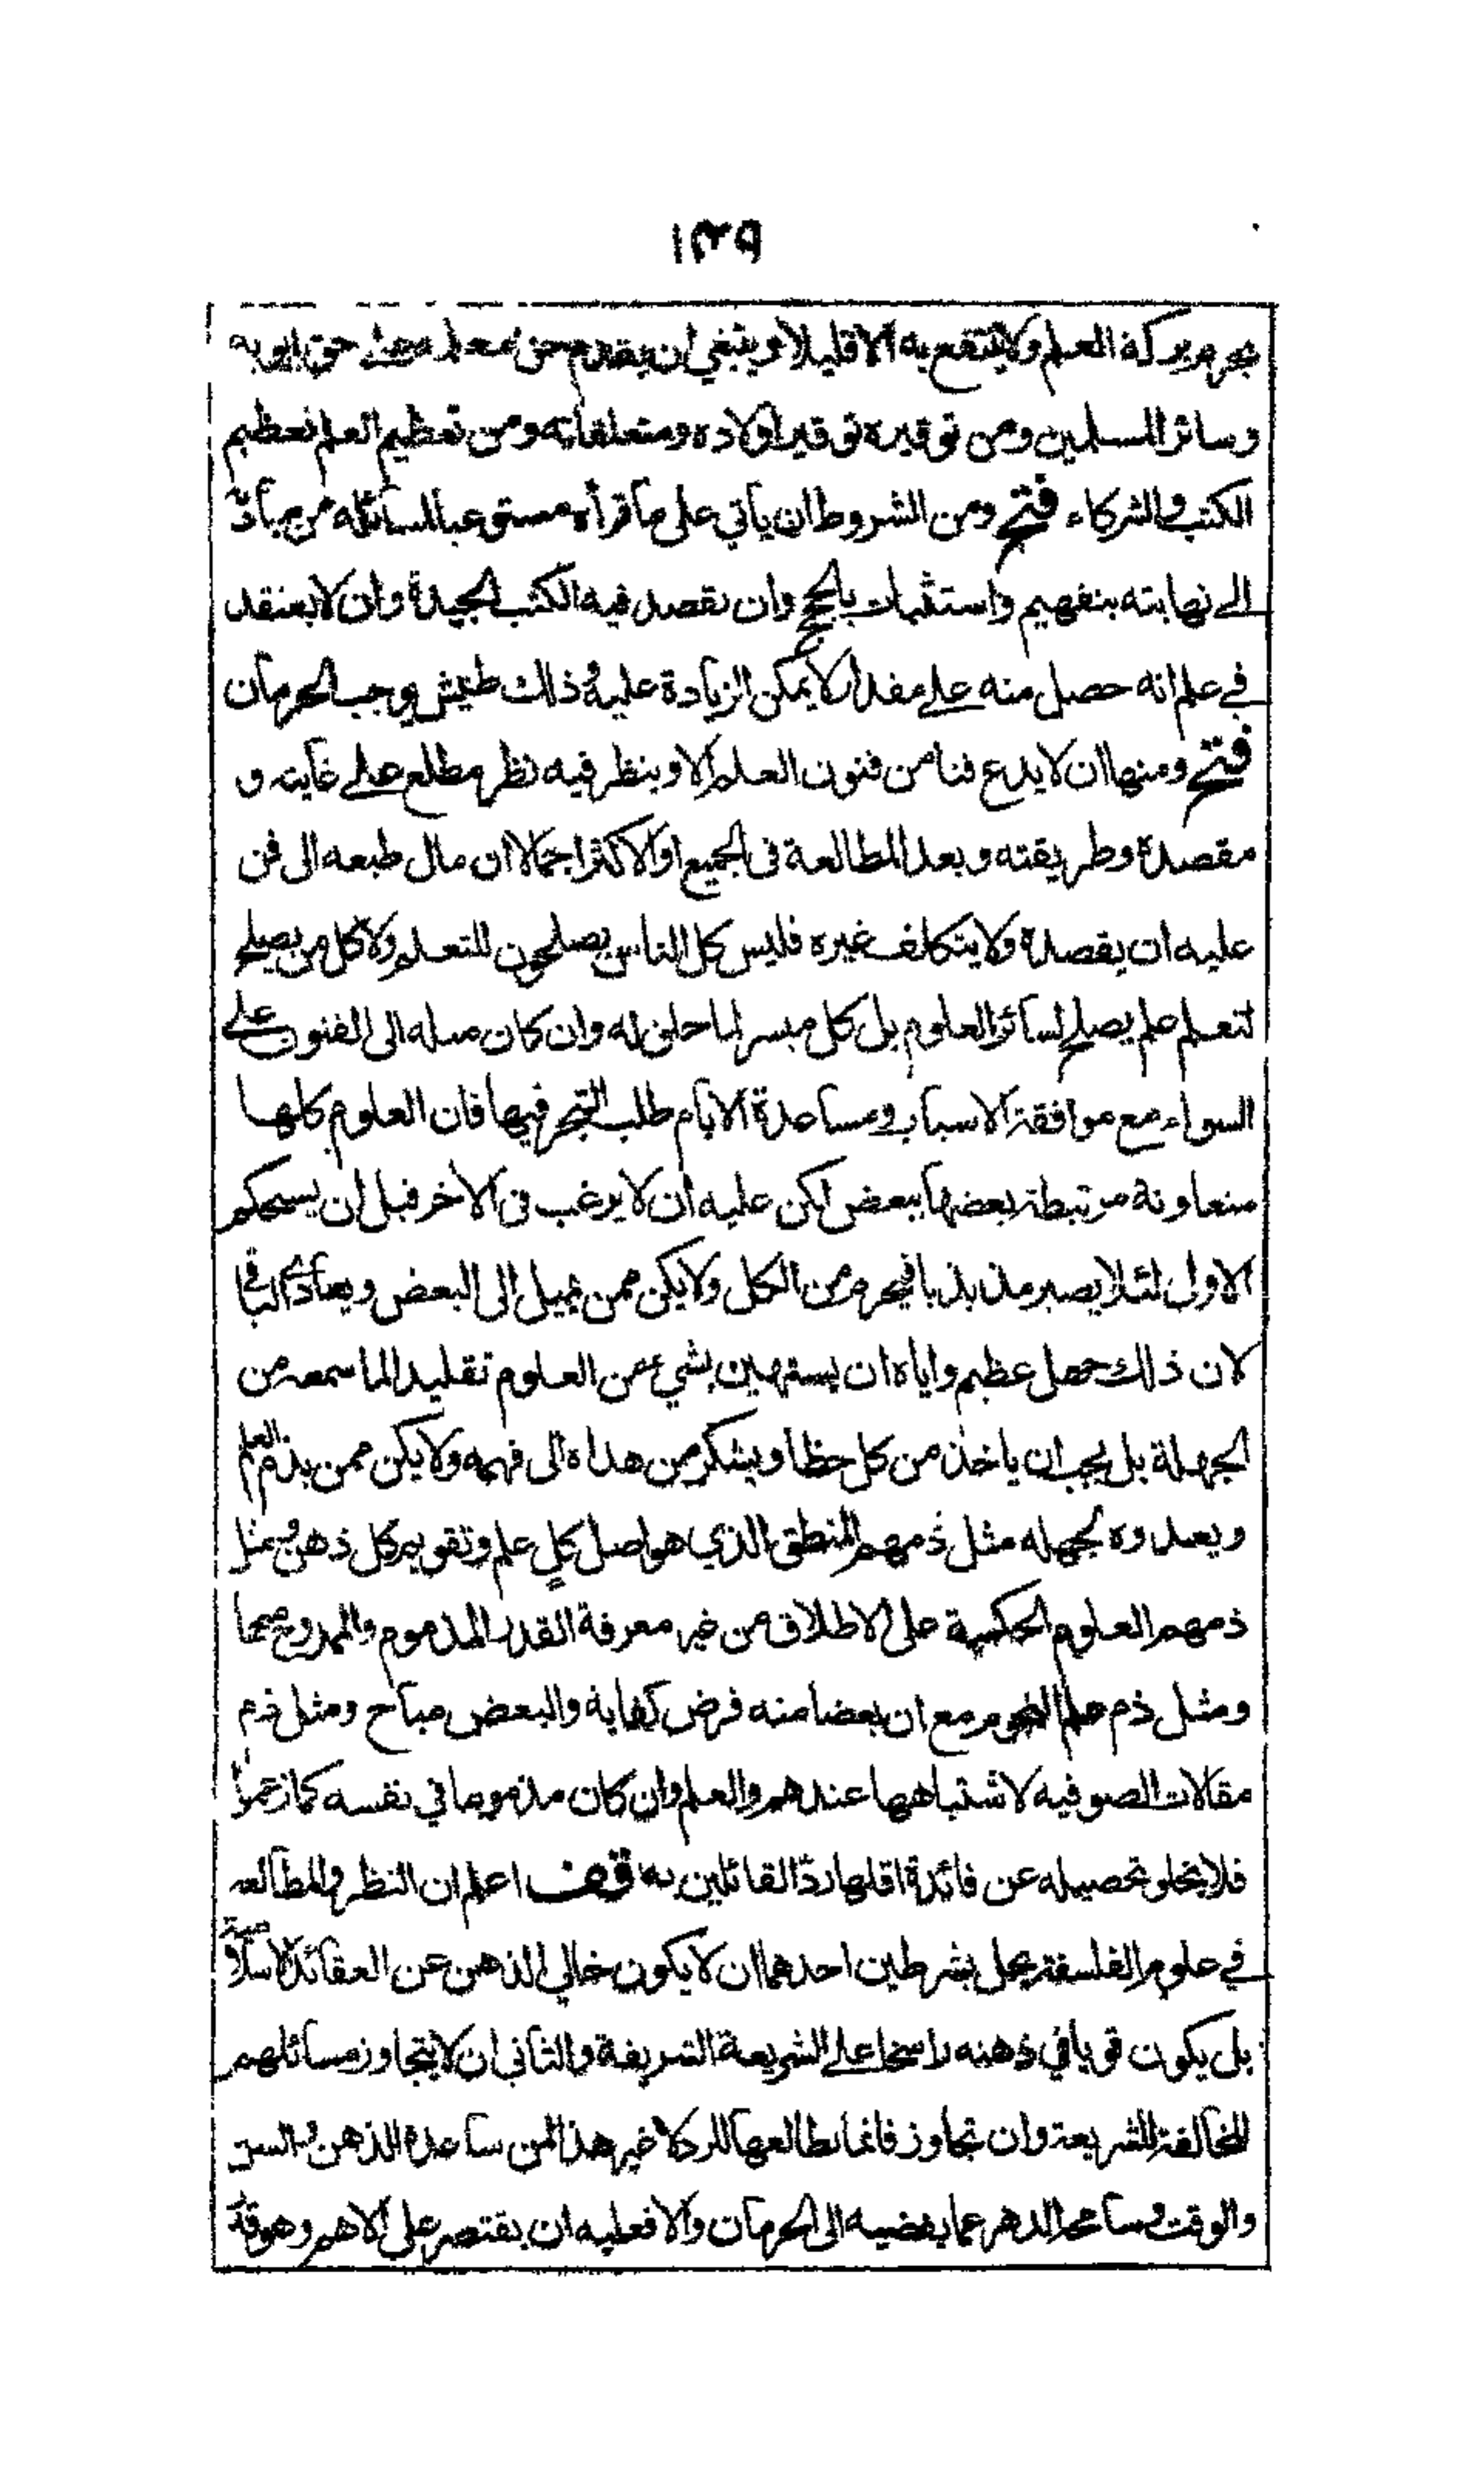 ١٣٩
يحرم بركة العلم ولا ينتفع به الا قليلا وينبغي ان يقدم حق معلمه على حق ابويه
وسائر المسلمين ومن توقيره توقير اولاده ومتعلقاته ومن تعظيم العلم تعظيم
الكتب والشركاء فتح ومن الشروط ان يأتي على ما قرأه مستوعبا لمسائله من مبادئه
الى نهايته بتفهيم واستثبات بالحجج وان يقصد فيه الكتب الجيدة وان لا يعتقد
في علم انه حصل منه على مقدار لا يمكن الزيادة عليه وذلك طيش يوجب الحرمان
فتح ومنها ان لا يدع فنا من فنون العلم الا وينظر فيه نظر مطلع على غايته و
مقصده وطريقته وبعد المطالعة فى الجميع او الاكثر اجمالا ان مال طبعه الى فن
عليه ان يقصده ولا يتكلف غيره فليس كل الناس يصلحون للتعلم ولا كل من يصلح
لتعلم علم يصلح لسائر العلوم بل كل ميسر لما خلق له وان كان ميله الى الفنون على
السواء مع موافقة الاسباب ومساعدة الايام طلب التبحر فيها فان العلوم كلها
متعاونة مرتبطة بعضها ببعض لكن عليه ان لا يرغب فى الآخر قبل ان يستحكم
الاول لئلا يصير مذبذبا فيحرم من الكل ولا يكن ممن يميل الى البعض ويعادي الباقي
لان ذلك جهل عظيم واياه ان يستهين بشيء من العلوم تقليدا لما سمعه من
الجهلة بل يجب ان ياخذ من كل حظا ويشكر من هداه الى فهمه ولا يكن ممن يذم العلم
ويعدوه لجهله مثل ذمهم المنطق الذي هو اصل كل علم وتقويم كل ذهن ومثل
ذمهم العلوم الحكمية على الاطلاق من غير معرفة القدر المذموم والممدوح منها
ومثل ذم علم النجوم مع ان بعضا منه فرض كفاية والبعض مباح ومثل ذم
مقالات الصوفيه لاشتباهها عندهم والعلم وان كان مذموما في نفسه كما زعموا
فلا يخلو تحصيله عن فائدة اقلها رد القائلين به قف اعلم ان النظر والمطالعه
في علوم الفلسفة يحل بشرطين احدهما ان لا يكون خالي الذهن عن العقائد الاسلامية
بل يكون قويا في ذهنه راسخا على الشريعة الشريفة والثانى ان لا يتجاوز مسائلهم
المخالفة للشريعة وان تجاوز فانما يطالعها للرد لا غير هذا لمن ساعده الذهن والسن
والوقت وسامحه الدهر عما يفضيه الى الحرمان والا فعليه ان يقتصر على الاهم وهو قدر